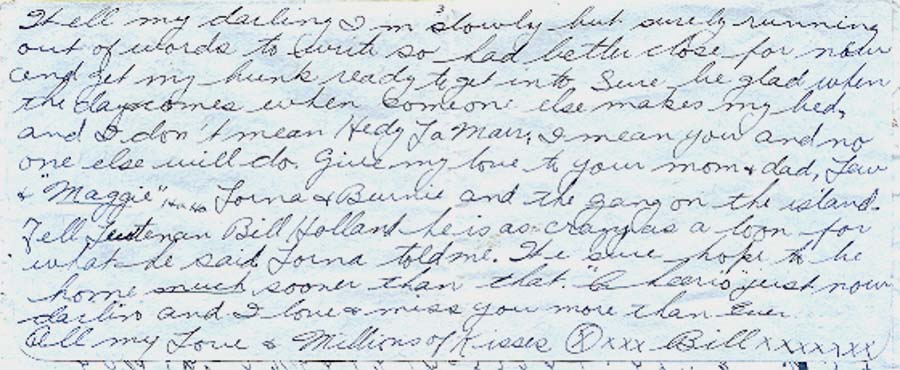 Well my darling I'm slowly but surely running
out of words to write so had better close for now
and get my bunk ready to get into. Sure be glad when
the day comes when someone else makes my bed,
and I don't mean Hedy La Marr, I mean you and no
one else will do. Give my love to your mom & dad, Lew
& "Maggie", Lorna & Burnie and the gang on the island.
Tell Lieutenan Bill Holland he is as crazy as a loon for
what he said Lorna told me. We sure hope to be
home much sooner than that. "Cheerio" just now
darlin and I love & miss you more than Ever.
All my Love & Millions of Kisses Ⓧxxx Bill xxxxxxx